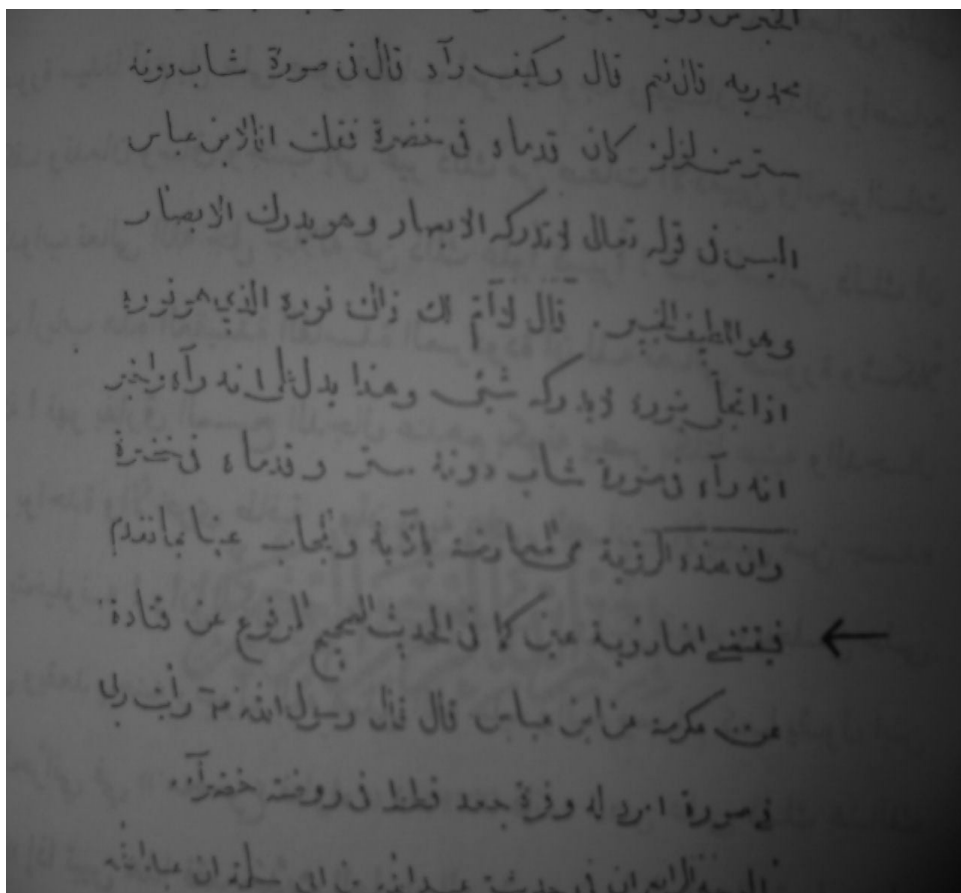 محمد ربه قال نعم قال وكيف رآه قال في صورة شاب دونه
ستر من لؤلؤ كان قدماه في خضرة فقلت انا لابن عباس
اليس في قوله تعالى لا تدركه الابصار وهو يدرك الابصار
وهو اللطيف الخبير . قال لا أم لك ذاك نوره الذي هو نوره
اذا تجلى بنوره لا يدركه شئ وهذا يدل على انه رآه واخبر
انه رآه في صورة شاب دونه ستر وقدماه في خضرة
وان هذه الرؤية هي المعارضة بالآية ويجاب عنها بما تقدم
فيقتضي انها رؤية عين كما في الحديث الصحيح المرفوع عن قتادة
عن عكرمة عن ابن عباس قال قال رسول الله رأيت ربي
في صورة امرد له وفرة جعد قطط في روضة خضرآء